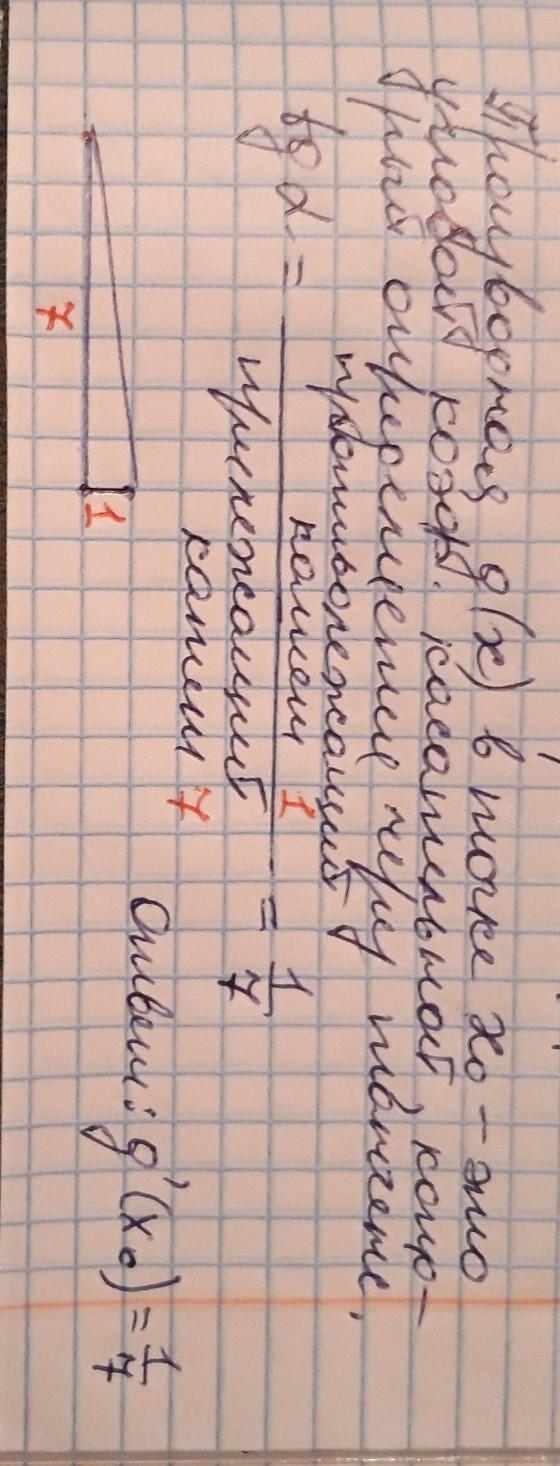 Производная g(x) в точке x₀ – это
угловой коэф. касательной, кото-
рый определение через тангенс,
tg α = противолежащий катет 1 / прилежащий катет 7 = 1/7
7
1
Ответ: g'(x₀) = 1/7